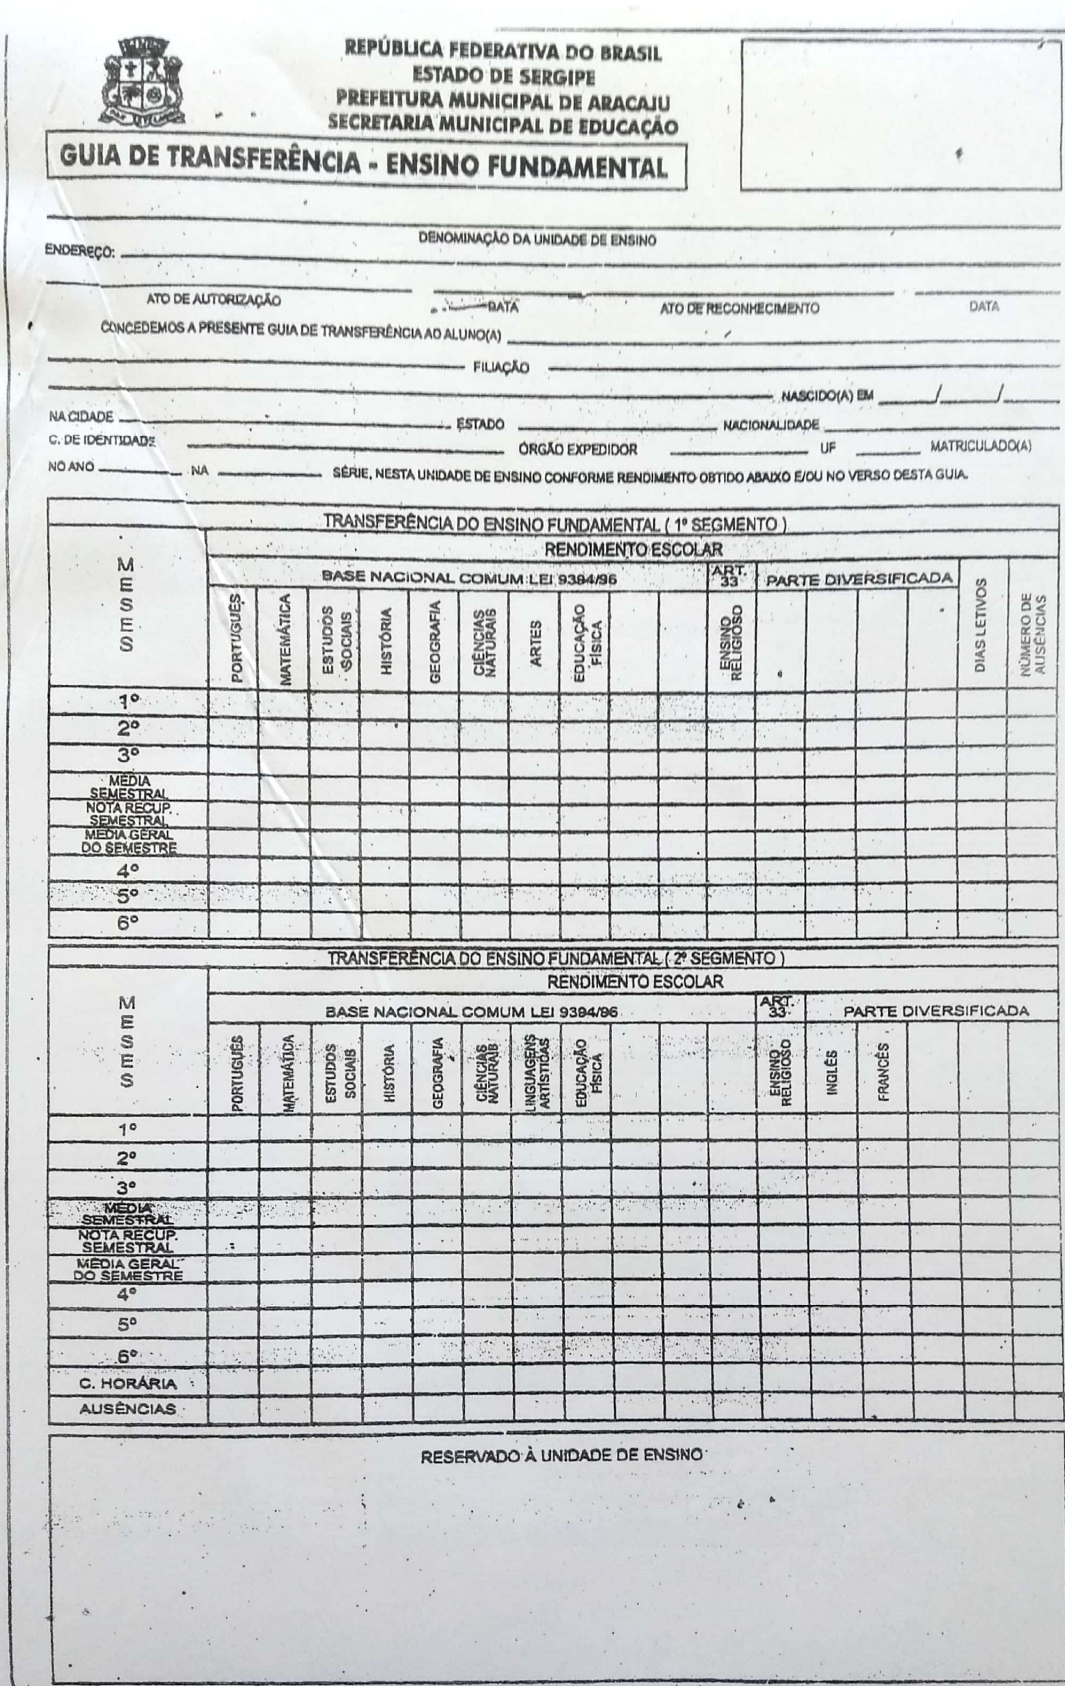 REPÚBLICA FEDERATIVA DO BRASIL
ESTADO DE SERGIPE
PREFEITURA MUNICIPAL DE ARACAJU
SECRETARIA MUNICIPAL DE EDUCAÇÃO
GUIA DE TRANSFERÊNCIA - ENSINO FUNDAMENTAL
DENOMINAÇÃO DA UNIDADE DE ENSINO
ENDEREÇO:
ATO DE AUTORIZAÇÃO DATA ATO DE RECONHECIMENTO DATA
CONCEDEMOS A PRESENTE GUIA DE TRANSFERÊNCIA AO ALUNO(A)
FILIAÇÃO
NASCIDO(A) EM / /
NA CIDADE ESTADO NACIONALIDADE
C. DE IDENTIDADE ÓRGÃO EXPEDIDOR UF MATRICULADO(A)
NO ANO NA SÉRIE, NESTA UNIDADE DE ENSINO CONFORME RENDIMENTO OBTIDO ABAIXO E/OU NO VERSO DESTA GUIA.
TRANSFERÊNCIA DO ENSINO FUNDAMENTAL ( 1º SEGMENTO )
RENDIMENTO ESCOLAR
MESES
BASE NACIONAL COMUM LEI 9394/96 ART. 33 PARTE DIVERSIFICADA
PORTUGUÊS
MATEMÁTICA
ESTUDOS SOCIAIS
HISTÓRIA
GEOGRAFIA
CIÊNCIAS NATURAIS
ARTES
EDUCAÇÃO FÍSICA
ENSINO RELIGIOSO
DIAS LETIVOS
NÚMERO DE AUSÊNCIAS
1º
2º
3º
MÉDIA
SEMESTRAL
NOTA RECUP.
SEMESTRAL
MEDIA GERAL
DO SEMESTRE
4º
5º
6º
TRANSFERÊNCIA DO ENSINO FUNDAMENTAL ( 2º SEGMENTO )
RENDIMENTO ESCOLAR
MESES
BASE NACIONAL COMUM LEI 9394/96 ART. 33 PARTE DIVERSIFICADA
PORTUGUÊS
MATEMÁTICA
ESTUDOS SOCIAIS
HISTÓRIA
GEOGRAFIA
CIÊNCIAS NATURAIS
LINGUAGENS ARTÍSTICAS
EDUCAÇÃO FÍSICA
ENSINO RELIGIOSO
INGLÊS
FRANCÊS
1º
2º
3º
MÉDIA
SEMESTRAL
NOTA RECUP.
SEMESTRAL
MÉDIA GERAL
DO SEMESTRE
4º
5º
6º
C. HORÁRIA
AUSÊNCIAS
RESERVADO À UNIDADE DE ENSINO